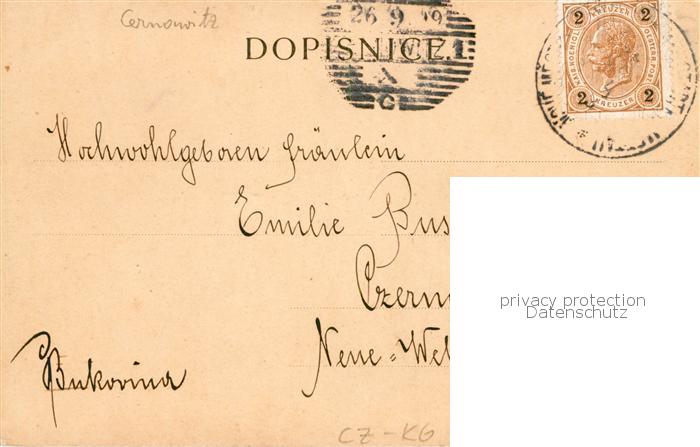 Cernowitz
26 9 99
DOPISNICE.
2 2
KAIS. KOENIGL. OESTERR. POST
2 KREUZER 2
Hochwohlgeboren Fräulein
Emilie Bus
Czern
Neue=Wel
Bukovina
privacy protection
Datenschutz
CZ-KG